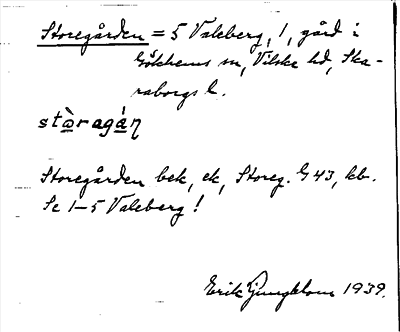 Storegården = 5 Valeberg, 1, gård i
Gökhems sn, Vilske hd, Ska-
raborgs l.
stòragán
Storegården bek, ek, Storeg. G 43, kb.
Se 1–5 Valeberg!
Erik Ljungblom 1939.